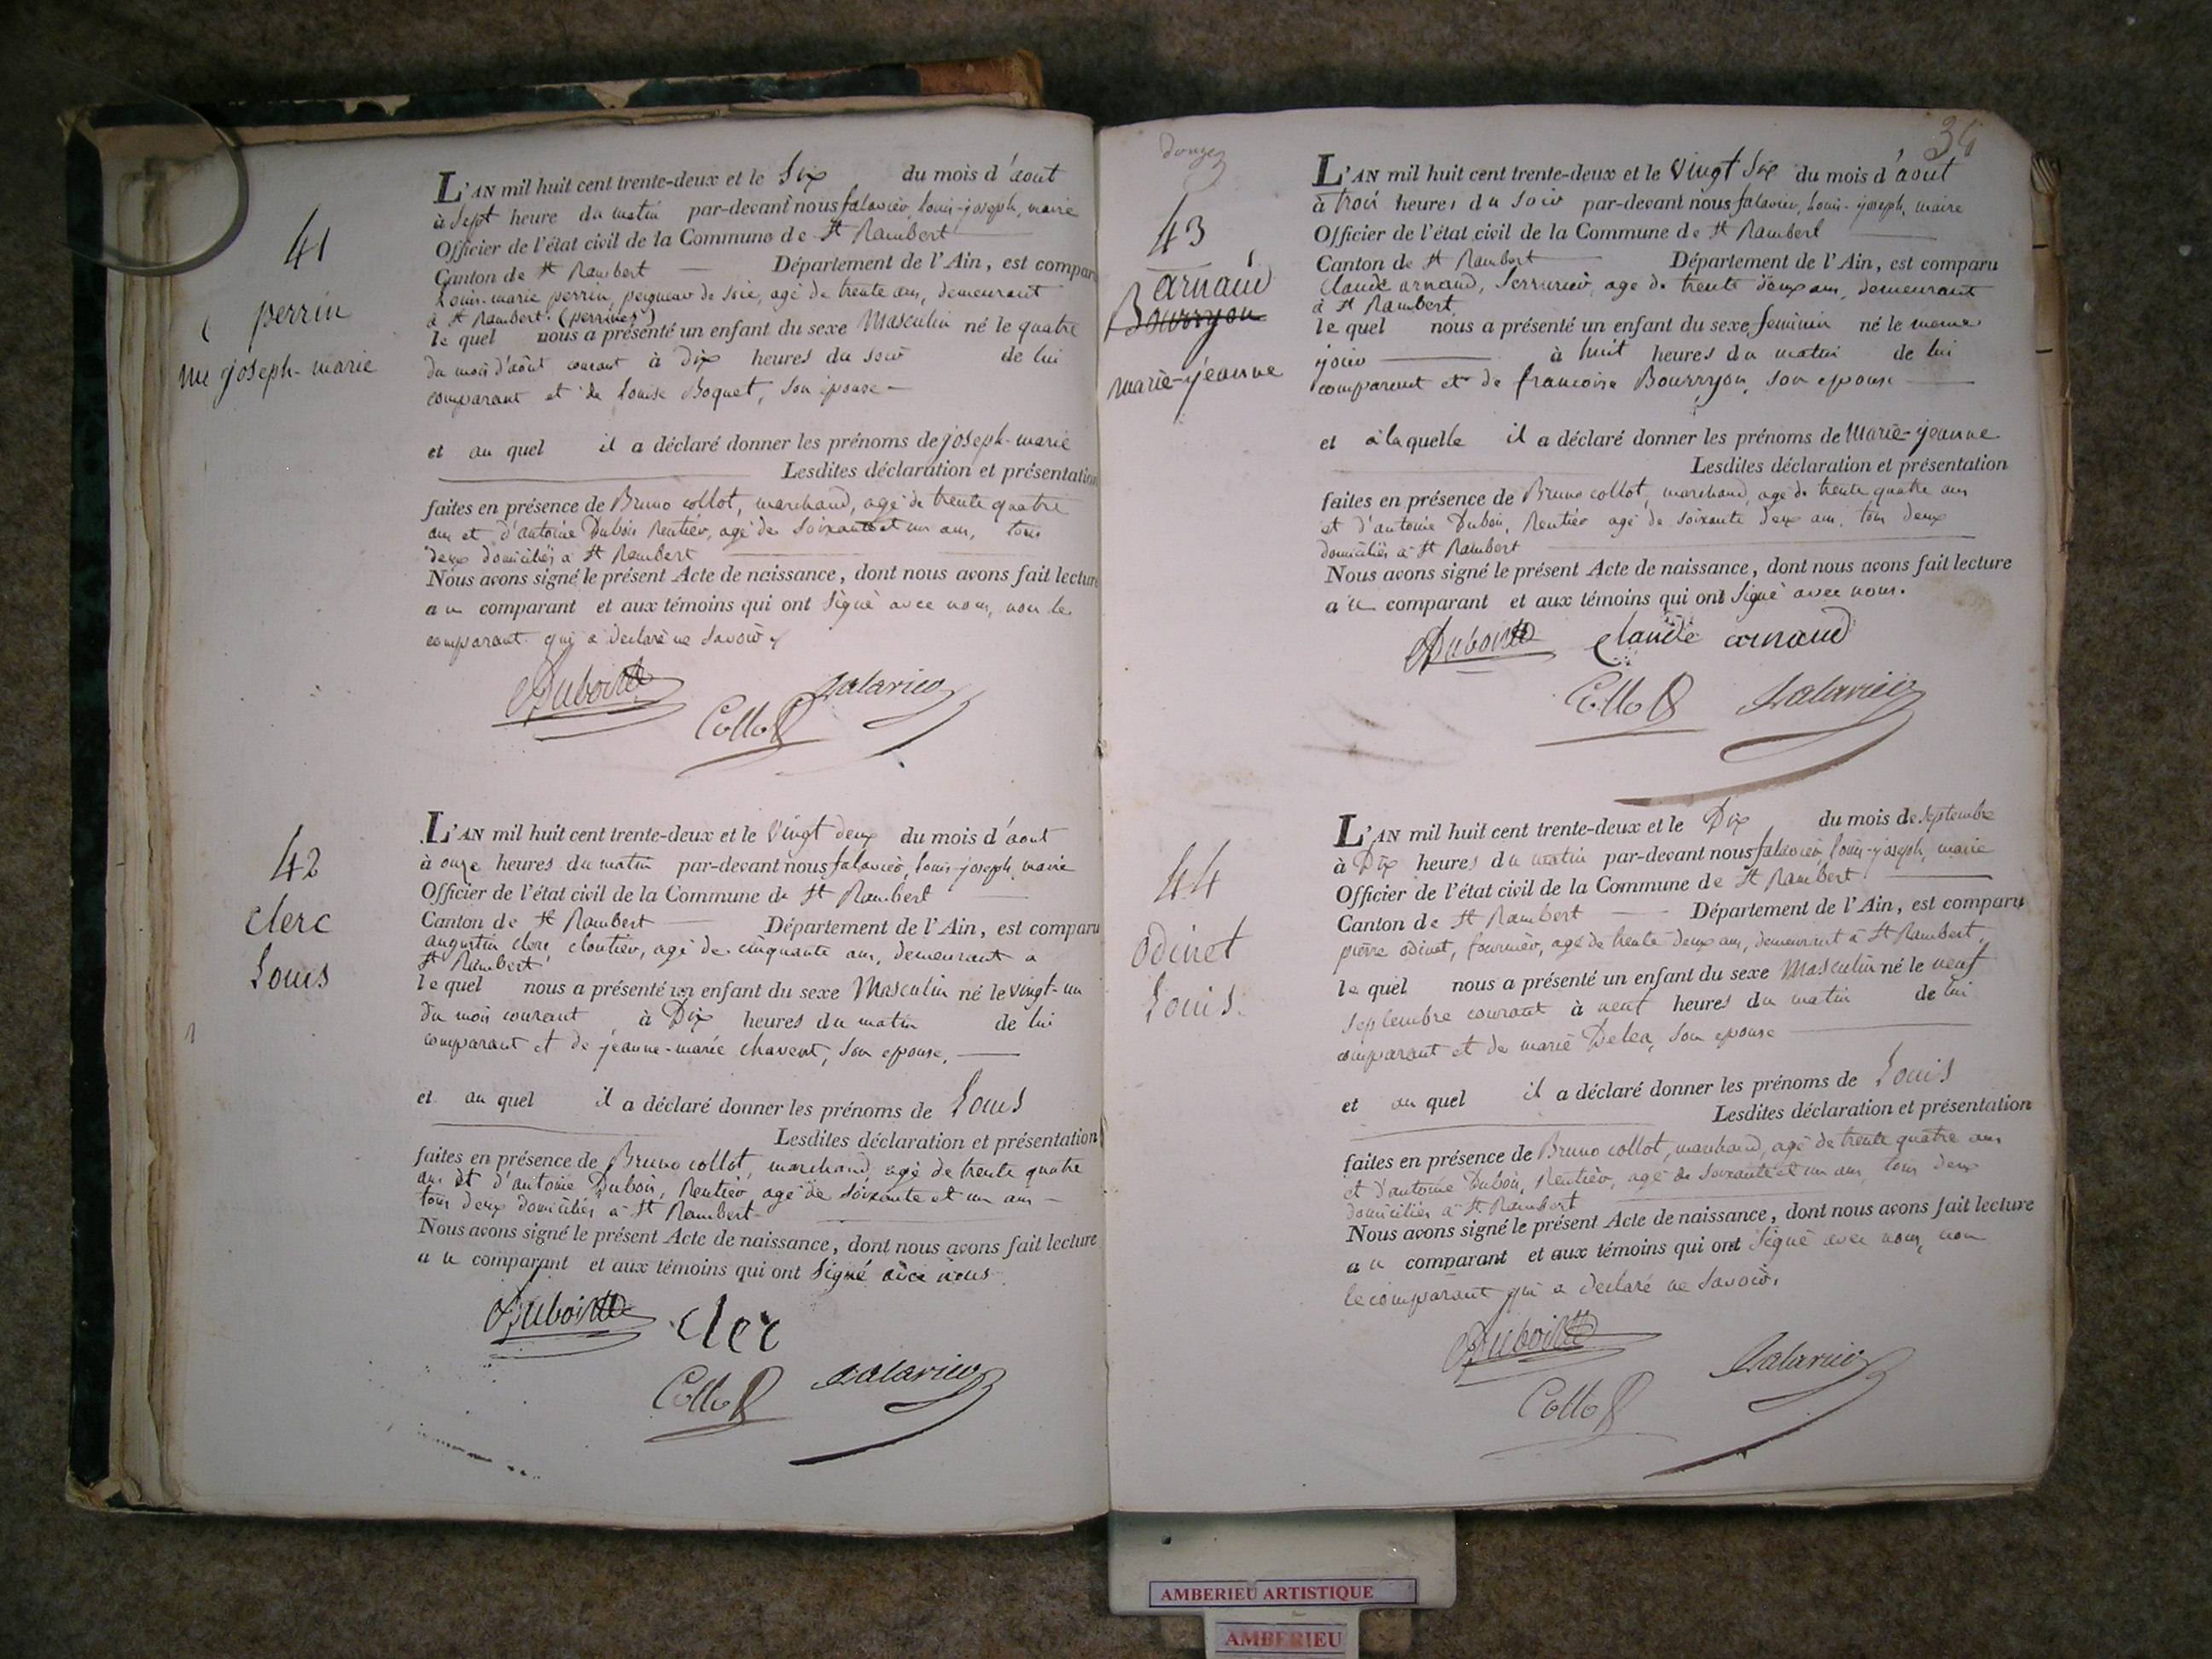 41
perrin
joseph-marie
L'AN mil huit cent trente-deux et le Six du mois d'aout
à Sept heure du matin par-devant nous falavier, louis-joseph, maire
Officier de l'état civil de la Commune de St Rambert
Canton de St Rambert Département de l'Ain, est comparu
Louis-marie perrin, peigneur de soie, agé de trente ans, demeurant
à St Rambert (perrines)
le quel nous a présenté un enfant du sexe Masculin né le quatre
du mois d'août courant à Dix heures du soir de lui
comparant et de louise Boquet, son épouse
et au quel il a déclaré donner les prénoms de joseph-marie
Lesdites déclaration et présentation
faites en présence de Bruno collot, marchand, agé de trente quatre
ans et d'antoine Dubois Rentier, agé de soixante et un ans, tous
deux domiciliés à St Rambert
Nous avons signé le présent Acte de naissance, dont nous avons fait lecture
au comparant et aux témoins qui ont signé avec nous, non le
comparant qui a déclaré ne savoir.
Dubois
Collot
falavier
42
clerc
Louis
L'AN mil huit cent trente-deux et le Vingt deux du mois d'aout
à onze heures du matin par-devant nous falavier, louis-joseph, maire
Officier de l'état civil de la Commune de St Rambert
Canton de St Rambert Département de l'Ain, est comparu
augustin clerc cloutier, agé de cinquante ans, demeurant a
St Rambert
le quel nous a présenté un enfant du sexe Masculin né le vingt-un
du mois courant à Dix heures du matin de lui
comparant et de jeanne-marie chavent, son epouse,
et au quel il a déclaré donner les prénoms de Louis
Lesdites déclaration et présentation
faites en présence de Bruno collot, marchand, agé de trente quatre
ans et d'antoine Dubois, Rentier agé de soixante et un ans
tous deux domiciliés à St Rambert
Nous avons signé le présent Acte de naissance, dont nous avons fait lecture
au comparant et aux témoins qui ont signé avec nous.
Dubois clerc
Collot falavier
34
43
arnaud
Bourryon
marie-jeanne
L'AN mil huit cent trente-deux et le Vingt Six du mois d'aout
à trois heures du soir par-devant nous falavier, louis-joseph, maire
Officier de l'état civil de la Commune de St Rambert
Canton de St Rambert Département de l'Ain, est comparu
Claude arnaud, Serrurier, agé de trente deux ans, demeurant
à St Rambert
le quel nous a présenté un enfant du sexe feminin né le meme
jour à huit heures du matin de lui
comparant et de francoise Bourryon, son epouse
et à la quelle il a déclaré donner les prénoms de Marie-jeanne
Lesdites déclaration et présentation
faites en présence de Bruno collot, marchand, agé de trente quatre ans
et d'antoine Dubois, Rentier agé de soixante deux ans, tous deux
domiciliés à St Rambert
Nous avons signé le présent Acte de naissance, dont nous avons fait lecture
au comparant et aux témoins qui ont signé avec nous.
Dubois claude arnaud
Collot falavier
44
odinet
Louis.
L'AN mil huit cent trente-deux et le Dix du mois de septembre
à Dix heures du matin par-devant nous falavier, louis-joseph, maire
Officier de l'état civil de la Commune de St Rambert
Canton de St Rambert Département de l'Ain, est comparu
pierre odinet, fournier, agé de trente deux ans, demeurant à St Rambert,
le quel nous a présenté un enfant du sexe Masculin né le neuf
septembre courant à neuf heures du matin de lui
comparant et de marie Delea, son epouse
et au quel il a déclaré donner les prénoms de Louis
Lesdites déclaration et présentation
faites en présence de Bruno collot, marchand, agé de trente quatre ans
et d'antoine Dubois, Rentier, agé de soixante et un ans, tous deux
domiciliés à St Rambert
Nous avons signé le présent Acte de naissance, dont nous avons fait lecture
au comparant et aux témoins qui ont signé avec nous, non
le comparant qui a déclaré ne savoir.
Dubois
Collot falavier
AMBERIEU ARTISTIQUE
AMBERIEU